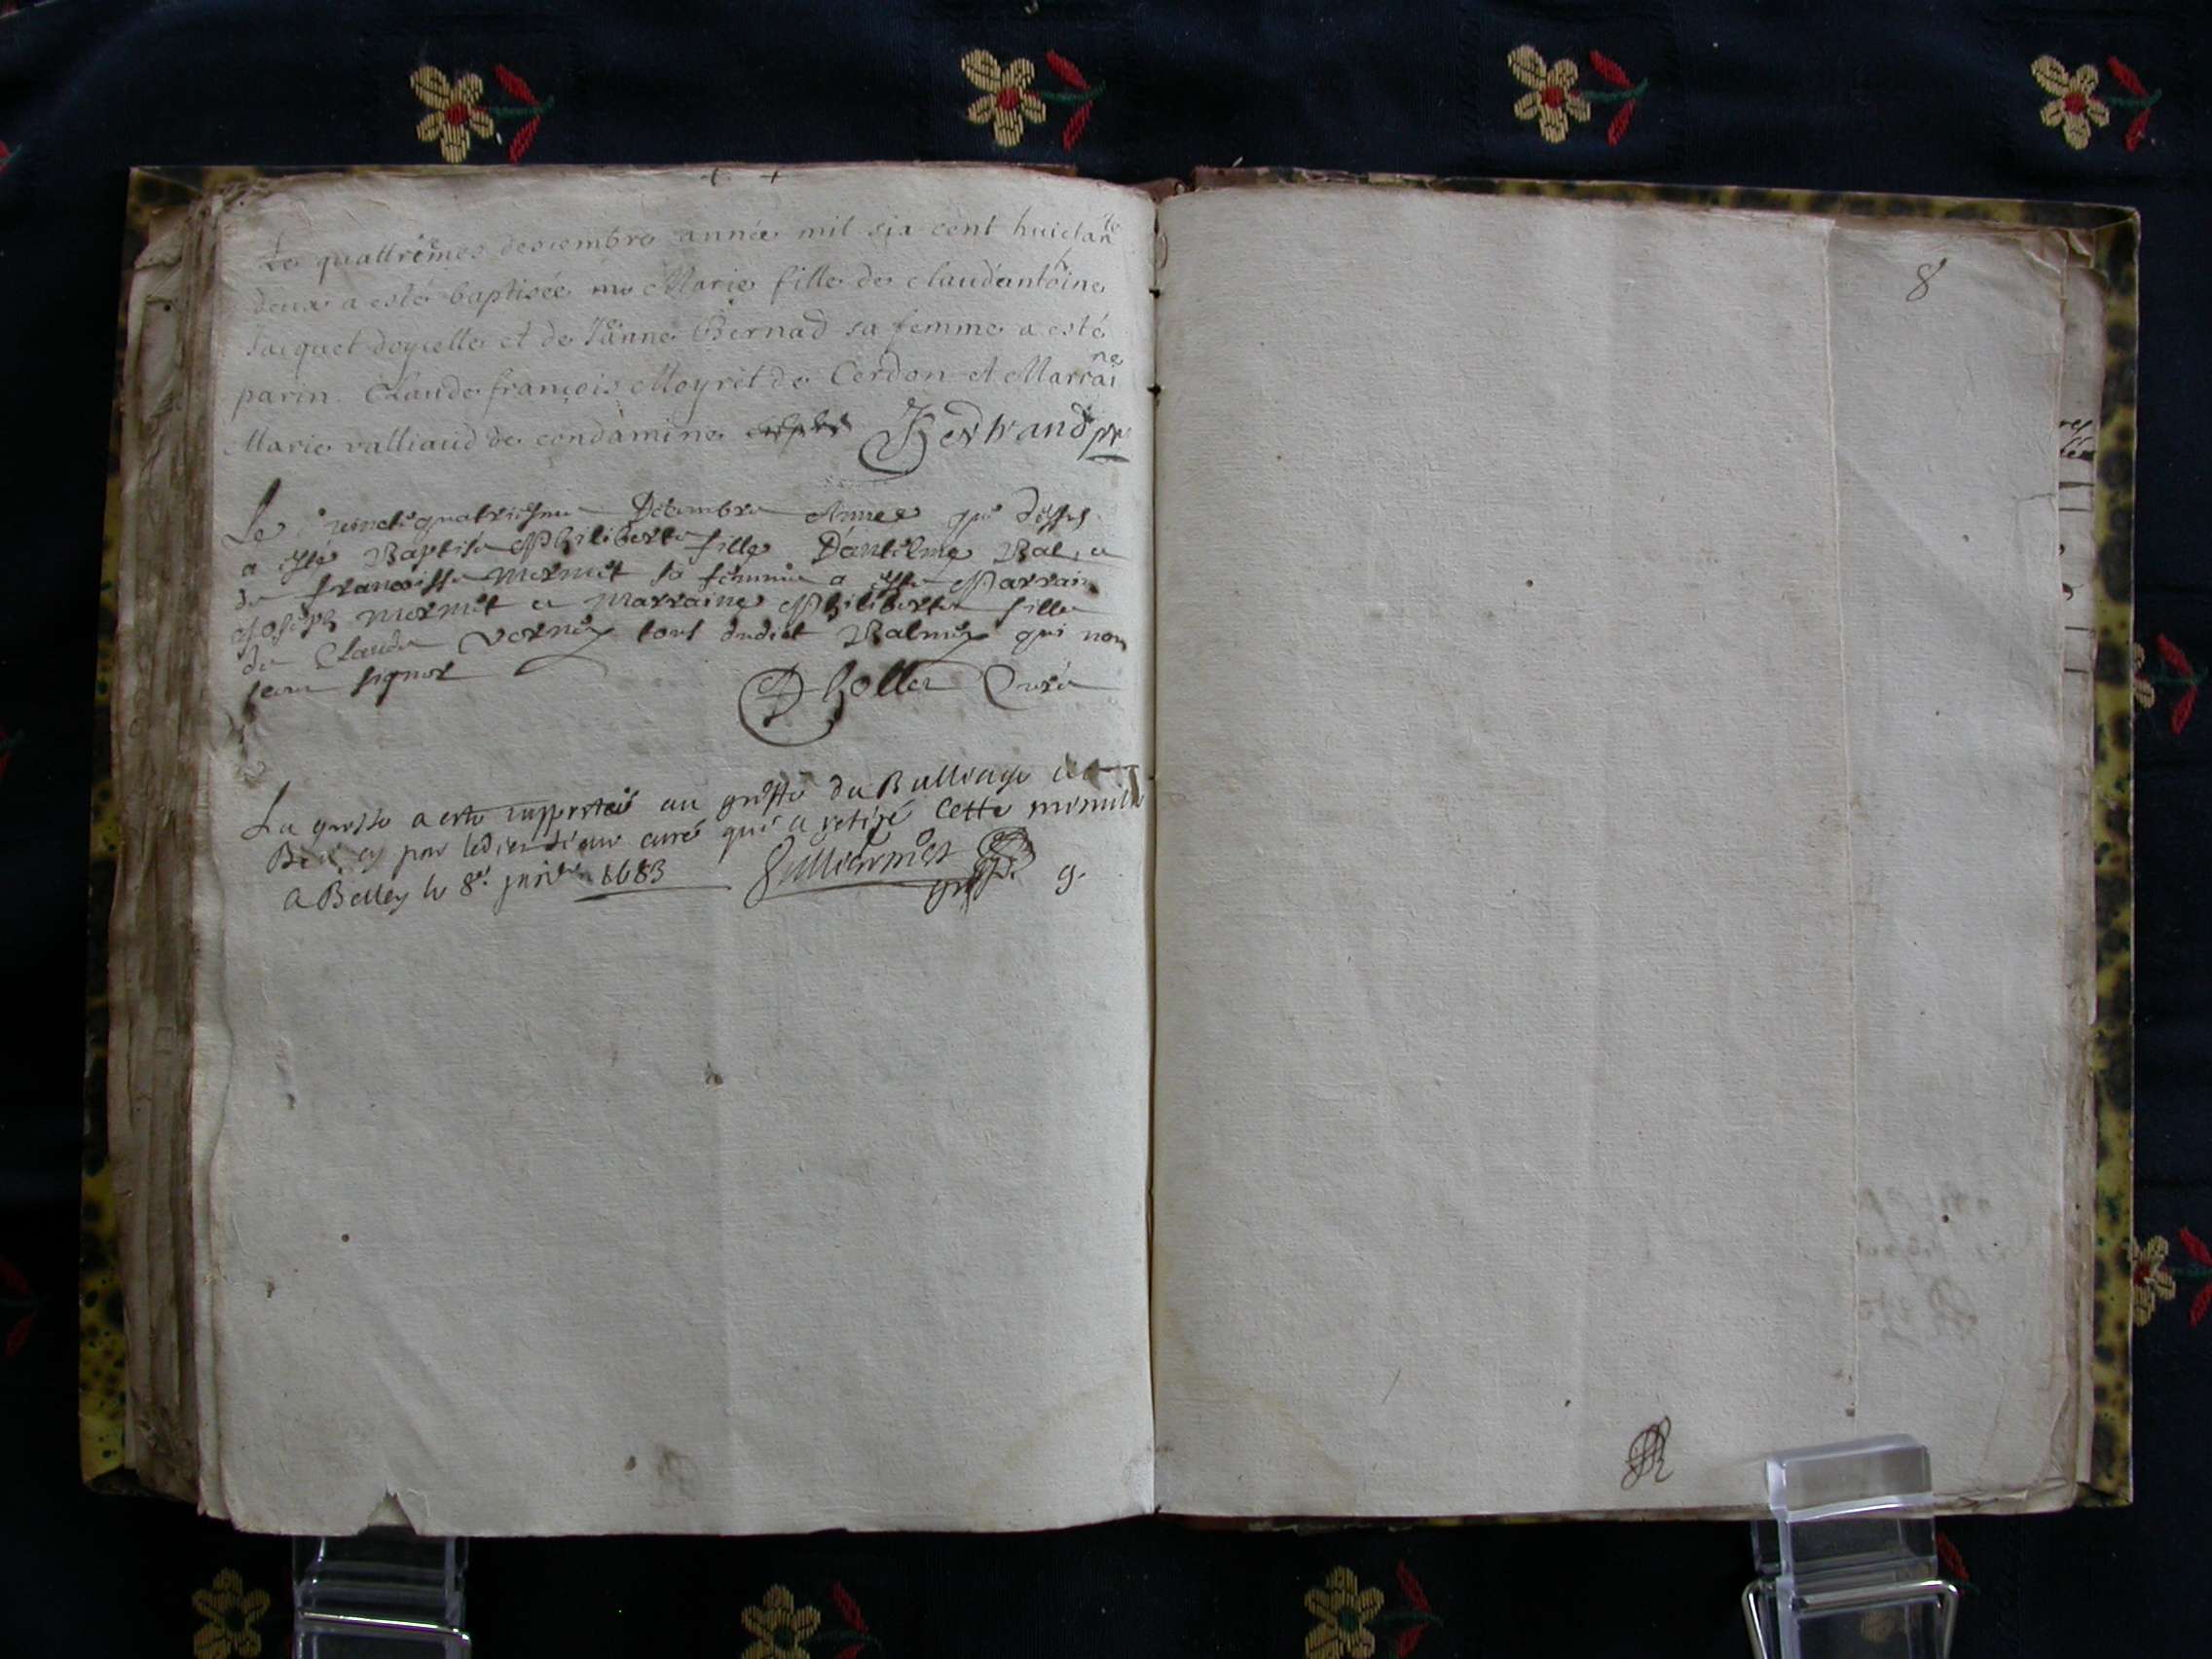 Le quattriemes desiembre année mil six cent huictante
deux a esté baptisée Marie fille de Claudanthoine
Jacquet et de Janne Bernad sa femme a esté
parin Claude françois Moyret de Cerdon et Marraine
Marie valliaud de condamine Bertrand ptr
Le vinctiquatriesme Décembre Annee que dessus
a esté Baptisé Philiberte fille D'antelme Bal, et
de francoisse Mermet sa femme a esté Parrain
Joseph Mermet et Marraine Philiberte fille
de Claude Vernex tous dudict Balmex qui non
sceu signer
Dhollea Curé
La grosse a esté rapportée au greffe du Balliage de
par ledict sieur curé qui a retiré Cette minutte
A Belley le 8e janvier 1683
g.
8